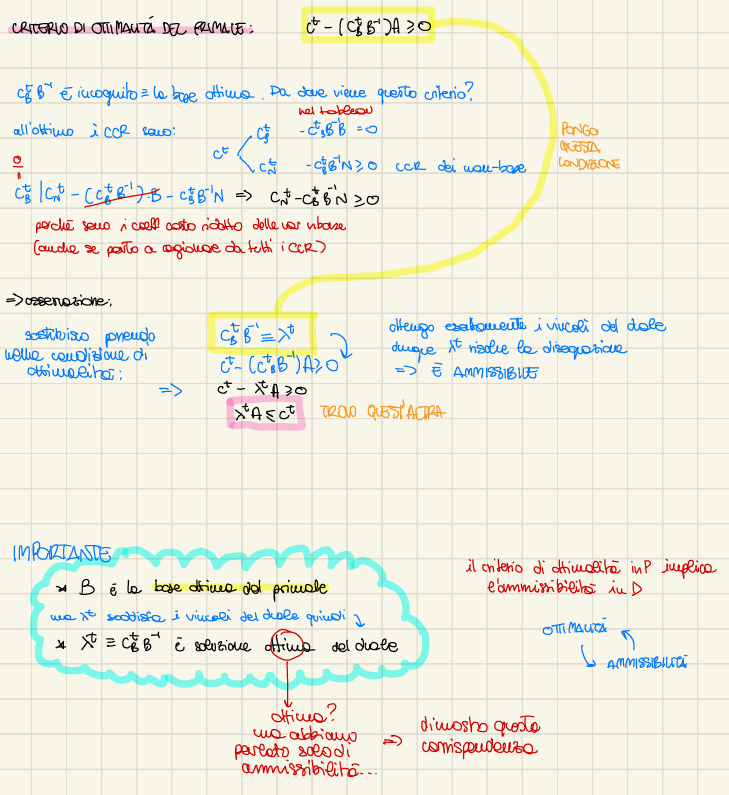 CRITERIO DI OTTIMALITÁ DEL PRIMALE: cᵗ - (cᵗ_B B⁻¹)A ≥ 0
cᵗ_B B⁻¹ È incognito ≡ la base ottima. Da dove viene questo criterio?
nel tableau
all'ottimo i CCR sono: cᵗ_B - cᵗ_B B⁻¹B = 0
cᵗ
cᵗ_N - cᵗ_B B⁻¹N ≥ 0 CCR dei non-base
PONGO
QUESTA
CONDIZIONE
0
cᵗ_B | cᵗ_N - (cᵗ_B B⁻¹)·B - cᵗ_B B⁻¹N => cᵗ_N - cᵗ_B B⁻¹N ≥ 0
perché sono i coeff costo ridotto delle var
(anche se porto a ragionare da tutti i CCR)
=> osservazione:
sostituisco ponendo
nella condizione di
ottimalità:
cᵗ_B B⁻¹ ≡ λᵗ
cᵗ - (cᵗ_B B⁻¹)A ≥ 0
=> cᵗ - λᵗA ≥ 0
λᵗA ≤ cᵗ TROVO QUEST'ALTRA
ottengo esattamente i vincoli del duale
dunque λᵗ risolve la disequazione
=> È AMMISSIBILE
IMPORTANTE
* B è la base ottima del primale
ma λᵗ soddisfa i vincoli del duale quindi
* λᵗ ≡ cᵗ_B B⁻¹ è soluzione ottima del duale
il criterio di ottimalità in P implica
l'ammissibilità in D
OTTIMALITÁ
AMMISSIBILITÁ
ottima?
ma abbiamo
parlato solo di
ammissibilità...
=> dimostro questa
corrispondenza